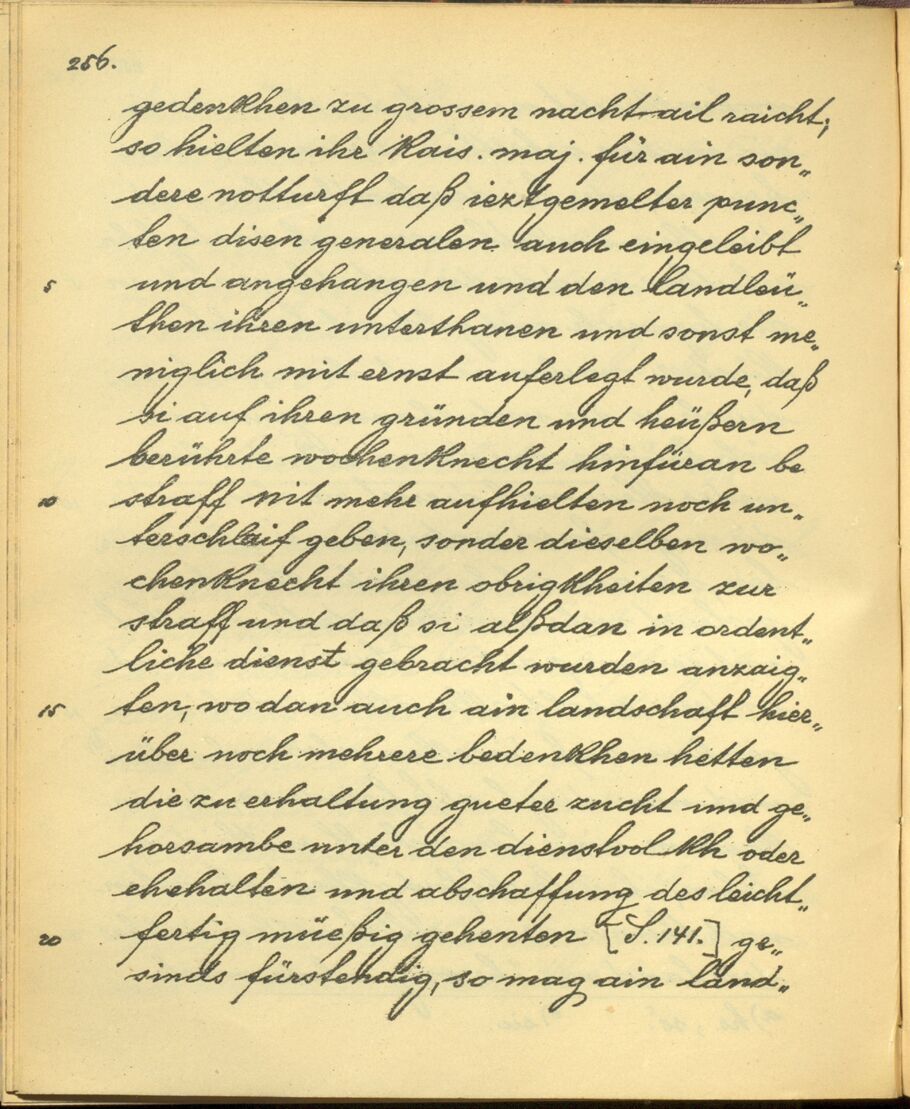 256.
gedenkhen zu grossem nacht-ail raicht;
so hielten ihr kais. maj. für ain son„
dere notturft daß ieztgemelter punc„
ten disen generalen auch eingeleibt
5 und angehangen und den landleü„
then ihren unterthanen und sonst me„
niglich mit ernst auferlegt wurde, daß
si auf ihren gründen und heüßern
berührte wochenknecht hinfüran be
10 straff nit mehr aufhielten noch un„
terschlaif geben, sonder dieselben wo„
chenknecht ihren obrigkheiten zur
straff und daß si alßdan in ordent„
liche dienst gebracht wurden anzaig„
15 ten, wo dan auch ain landschaft hier„
über noch mehrere bedenkhen hetten
die zu erhaltung gueter zucht und ge„
horsambe unter den dienstvolkh oder
ehehalten und abschaffung des leicht„
20 fertig müeßig gehenten [S. 141.] ge„
sinds fürstendig, so mag ain land„